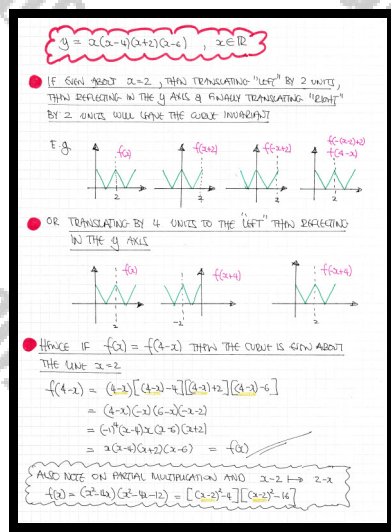 y = x(x-4)(x+2)(x-6) , x∈ℝ
IF EVEN ABOUT x=2, THEN TRANSLATING "LEFT" BY 2 UNITS,
THEN REFLECTING IN THE y AXIS & FINALLY TRANSLATING "RIGHT"
BY 2 UNITS WILL LEAVE THE CURVE INVARIANT
E.g.
f(x) f(x+2) f(-x+2) f(-(x-2)+2)
f(4-x)
2 2 2 2
OR TRANSLATING BY 4 UNITS TO THE "LEFT" THEN REFLECTING
IN THE y AXIS
f(x) f(x+4) f(-x+4)
2 -2 2
HENCE IF f(x) = f(4-x) THEN THE CURVE IS EVEN ABOUT
THE LINE x=2
f(4-x) = (4-x)[(4-x)-4][(4-x)+2][(4-x)-6]
= (4-x)(-x)(6-x)(-x-2)
= (-1)⁴(x-4)x(x-6)(x+2)
= x(x-4)(x+2)(x-6) = f(x)
ALSO NOTE ON PARTIAL MULTIPLICATION AND x-2 ↦ 2-x
f(x) = (x²-4x)(x²-4x-12) = [(x-2)²-4][(x-2)²-16]